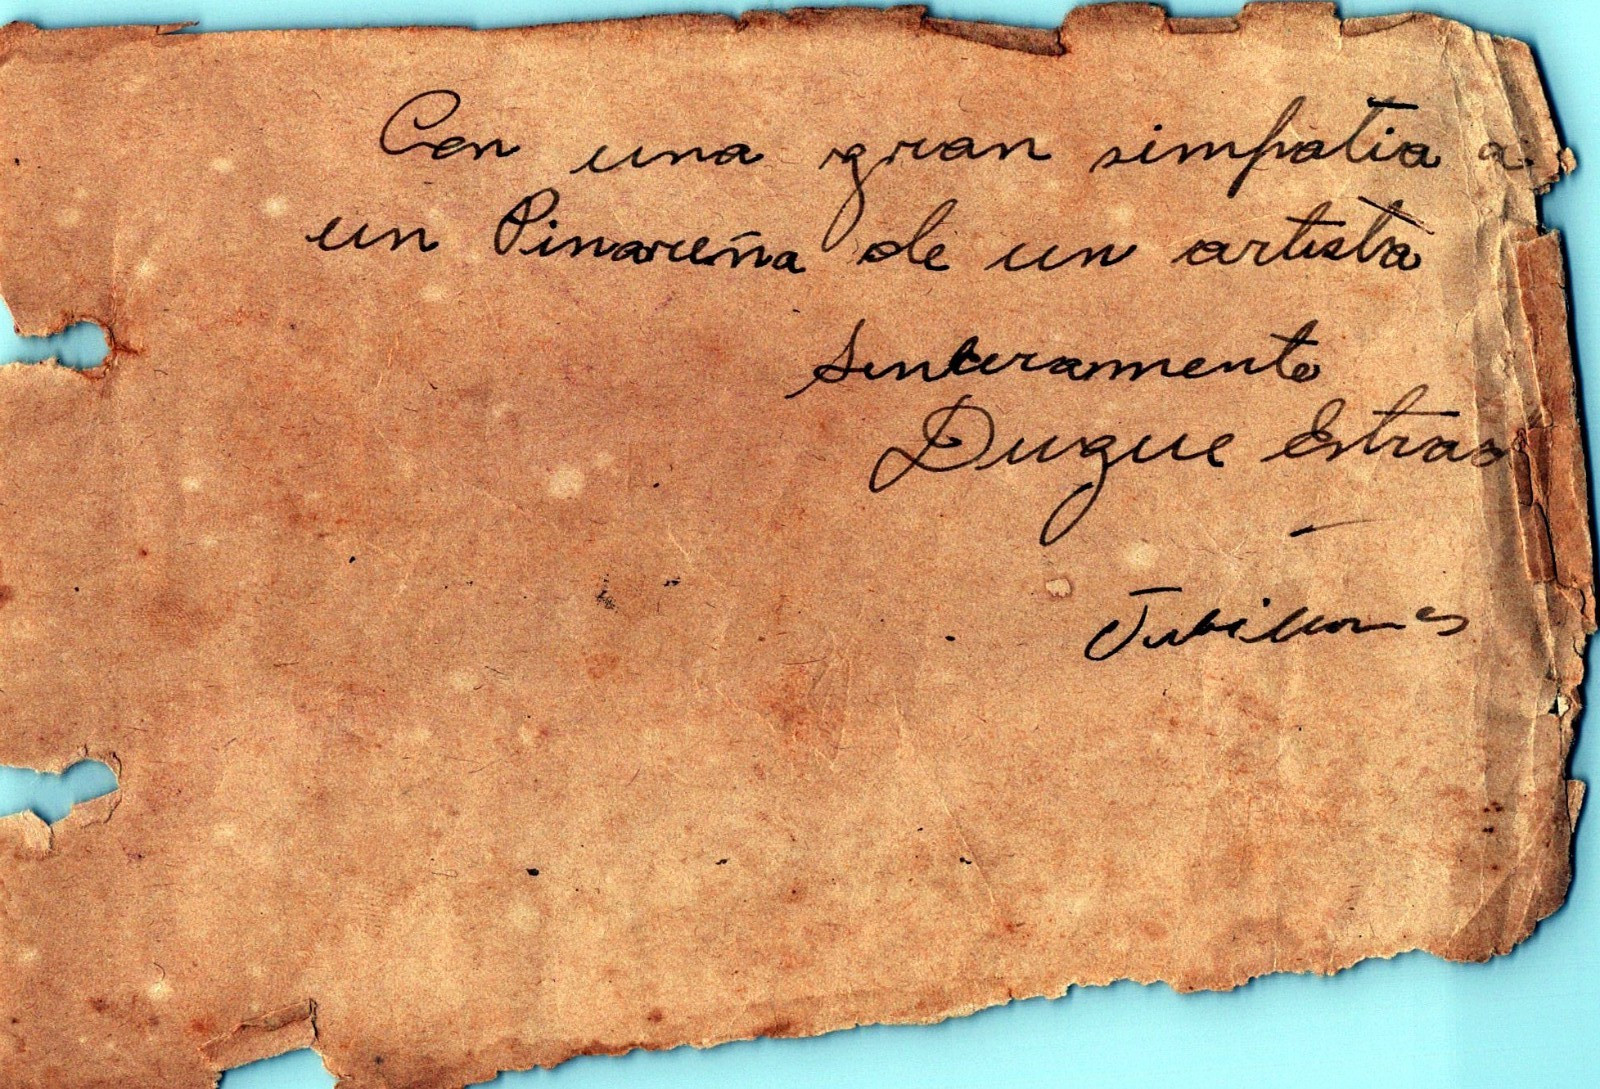 Con una gran simpatia a
un Pinareña de un artista
Sinceramente
Duque Estrao